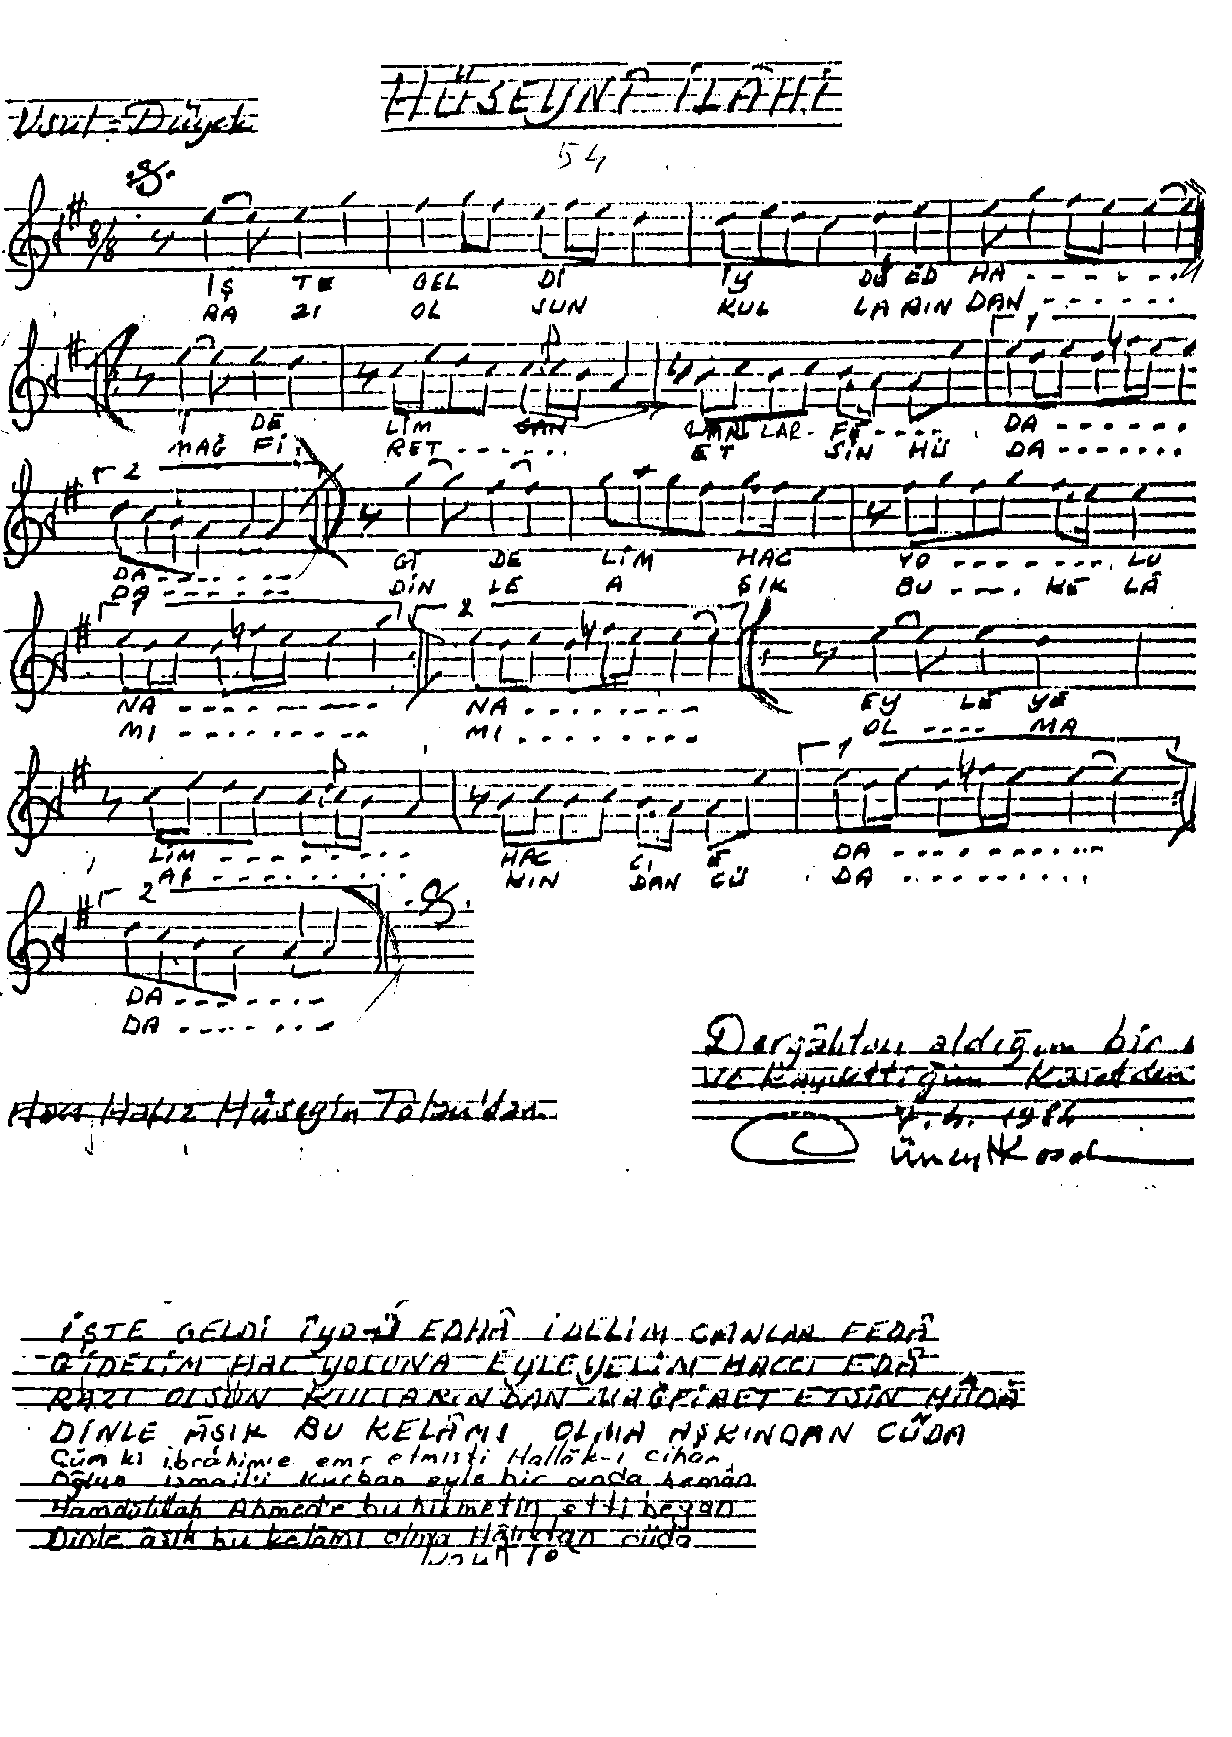 HÜSEYNÎ İLÂHİ
Usul = Düyek
54
8/8
İŞ TE GEL Dİ İY DÜ ED HA - - - - - -
RA ZI OL SUN KUL LA RIN DAN - - - - - -
1
İ DE LİM CAN CAN LAR FE - - - - DA - - - - - -
MAĞ Fİ RET - - - - - - ET SİN HÜ DA - - - - - -
2
DA - - - - - - Gİ DE LİM HAC YO - - - - - LU
DA - - - - - - DİN LE A ŞIK BU - - - - KE LÂ
1 2
NA - - - - - - - NA - - - - - - - EY LE YE
MI - - - - - - - MI - - - - - - - OL - - - - MA
1
LİM - - - - - - - - HAC CI E DA - - - - - - - -
AŞ - - - - - - - - KIN DAN CÜ DA - - - - - - - -
2
DA - - - - - - -
DA - - - - - - -
Dergâhtan aldığım bir
ve kaydettiğim Kasetden
Hacı Hafız Hüseyin Tolan'dan
7. 4. 1984
Cüneyt Kosal
İŞTE GELDİ ÎYD-Ü EDHÂ İDELİM CANLAR FEDÂ
GİDELİM HAC YOLUNA EYLEYELİM HACCI EDÂ
RAZI OLSUN KULLARINDAN MAĞFİRET ETSİN HÜDÂ
DİNLE ÂŞIK BU KELÂMI OLMA AŞKINDAN CÜDA
Çüm ki ibrâhime emr etmişti Hallâk-ı cihan,
Oğlun ismail'i kurban eyle bir anda hemân
Hamdülillah Ahmede bu hikmetin etti beyan
Dinle âşık bu kelâmı olma Hâlıktan cüda